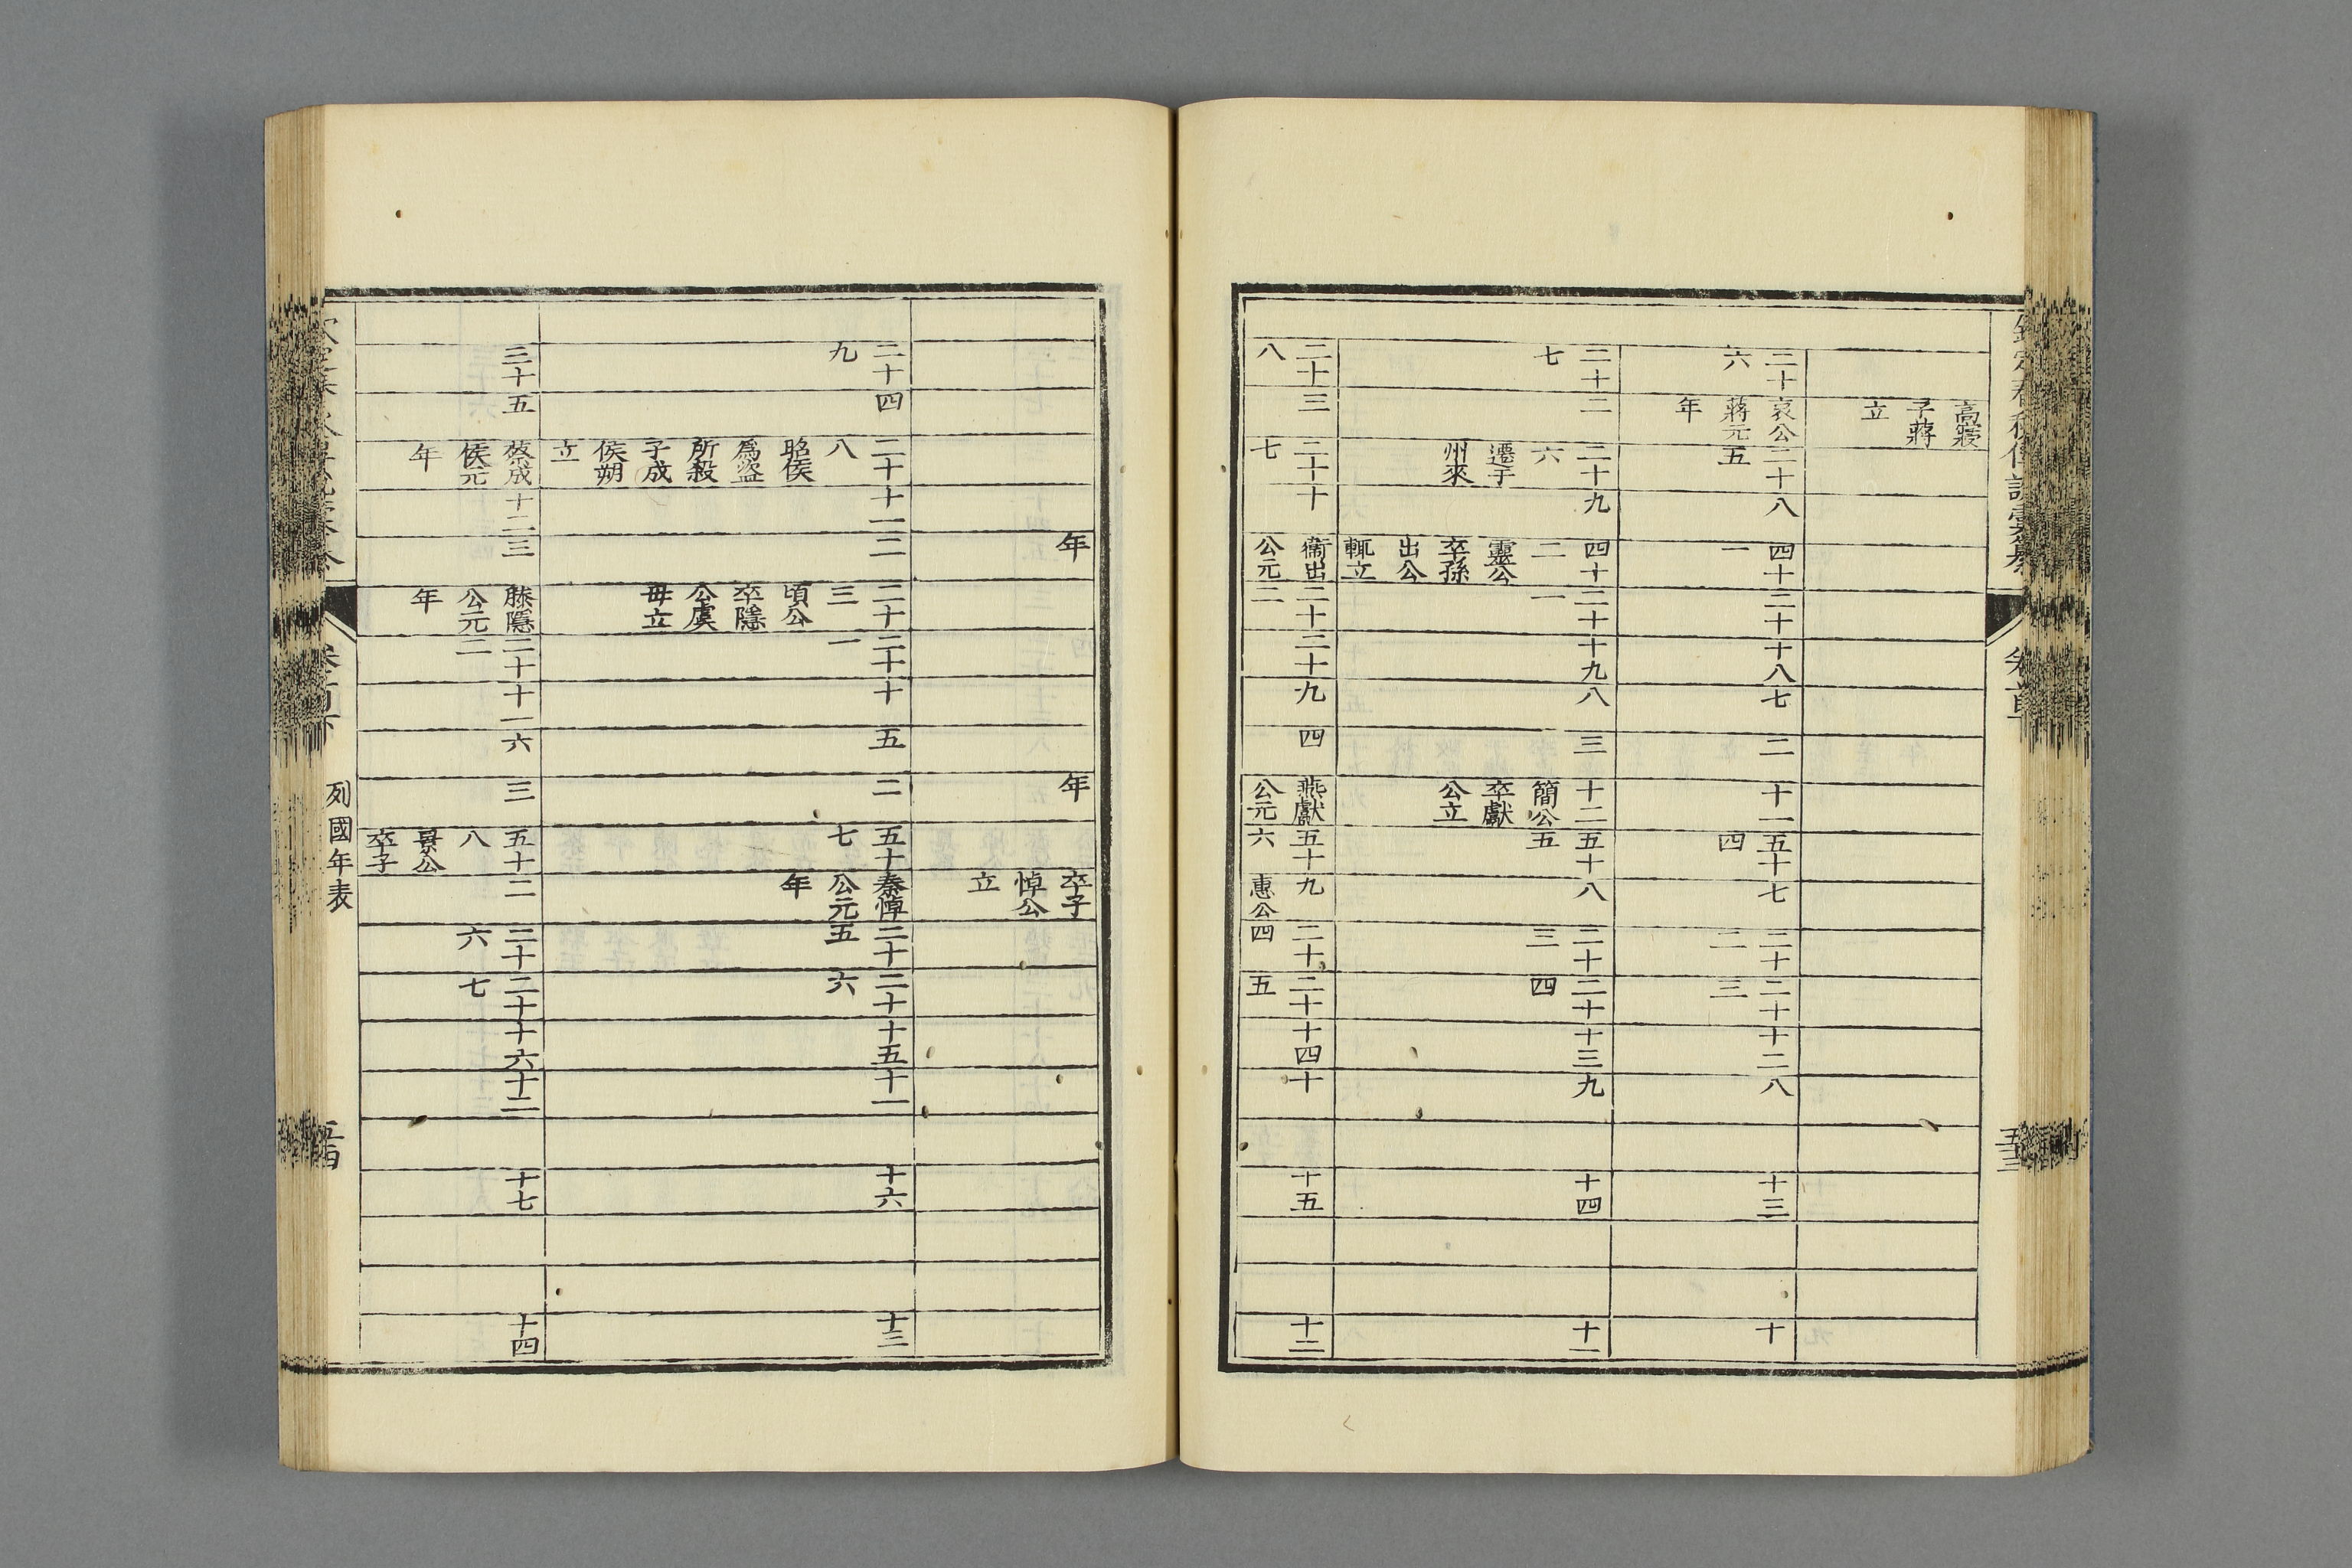 欽定春秋傳說彙纂
卷首
五十三
高寢
子蔣
立
二十 哀公 二十 八 四十 二十 十八 七 二 十一 五十 七 二十 二十 十二 八 十三 十
六 蔣元 五 一 四 二 三
年
二十 二 二十 九 四十 二十 十九 八 三 十二 五十 八 二十 二十 十三 九 十四 十一
七 六 二 一 簡公 五 三 四
遷于 靈公 卒獻
州來 卒孫 公立
出公
輒立
二十 三 二十 十 衞出 二十 二十 九 四 燕獻 五十 九 二十 二十 十四 十 十五 十二
八 七 公元 二 公元 六 惠公 四 五
年 年 卒子
悼公
立
二十 四 二十 十一 二 二十 二十 十 五 二 五十 秦悼 二十 二十 十五 十一 十六 十三
九 八 三 一 七 公元 五 六
昭侯 頃公 年
爲盜 卒隱
所殺 公虞
子成 毋立
侯朔
立
二十 五 蔡成 十二 三 滕隱 二十 十一 六 三 五十 二 二十 二十 十六 十二 十七 十四
侯元 公元 二 八 六 七
年 年 景公
卒子
列國年表